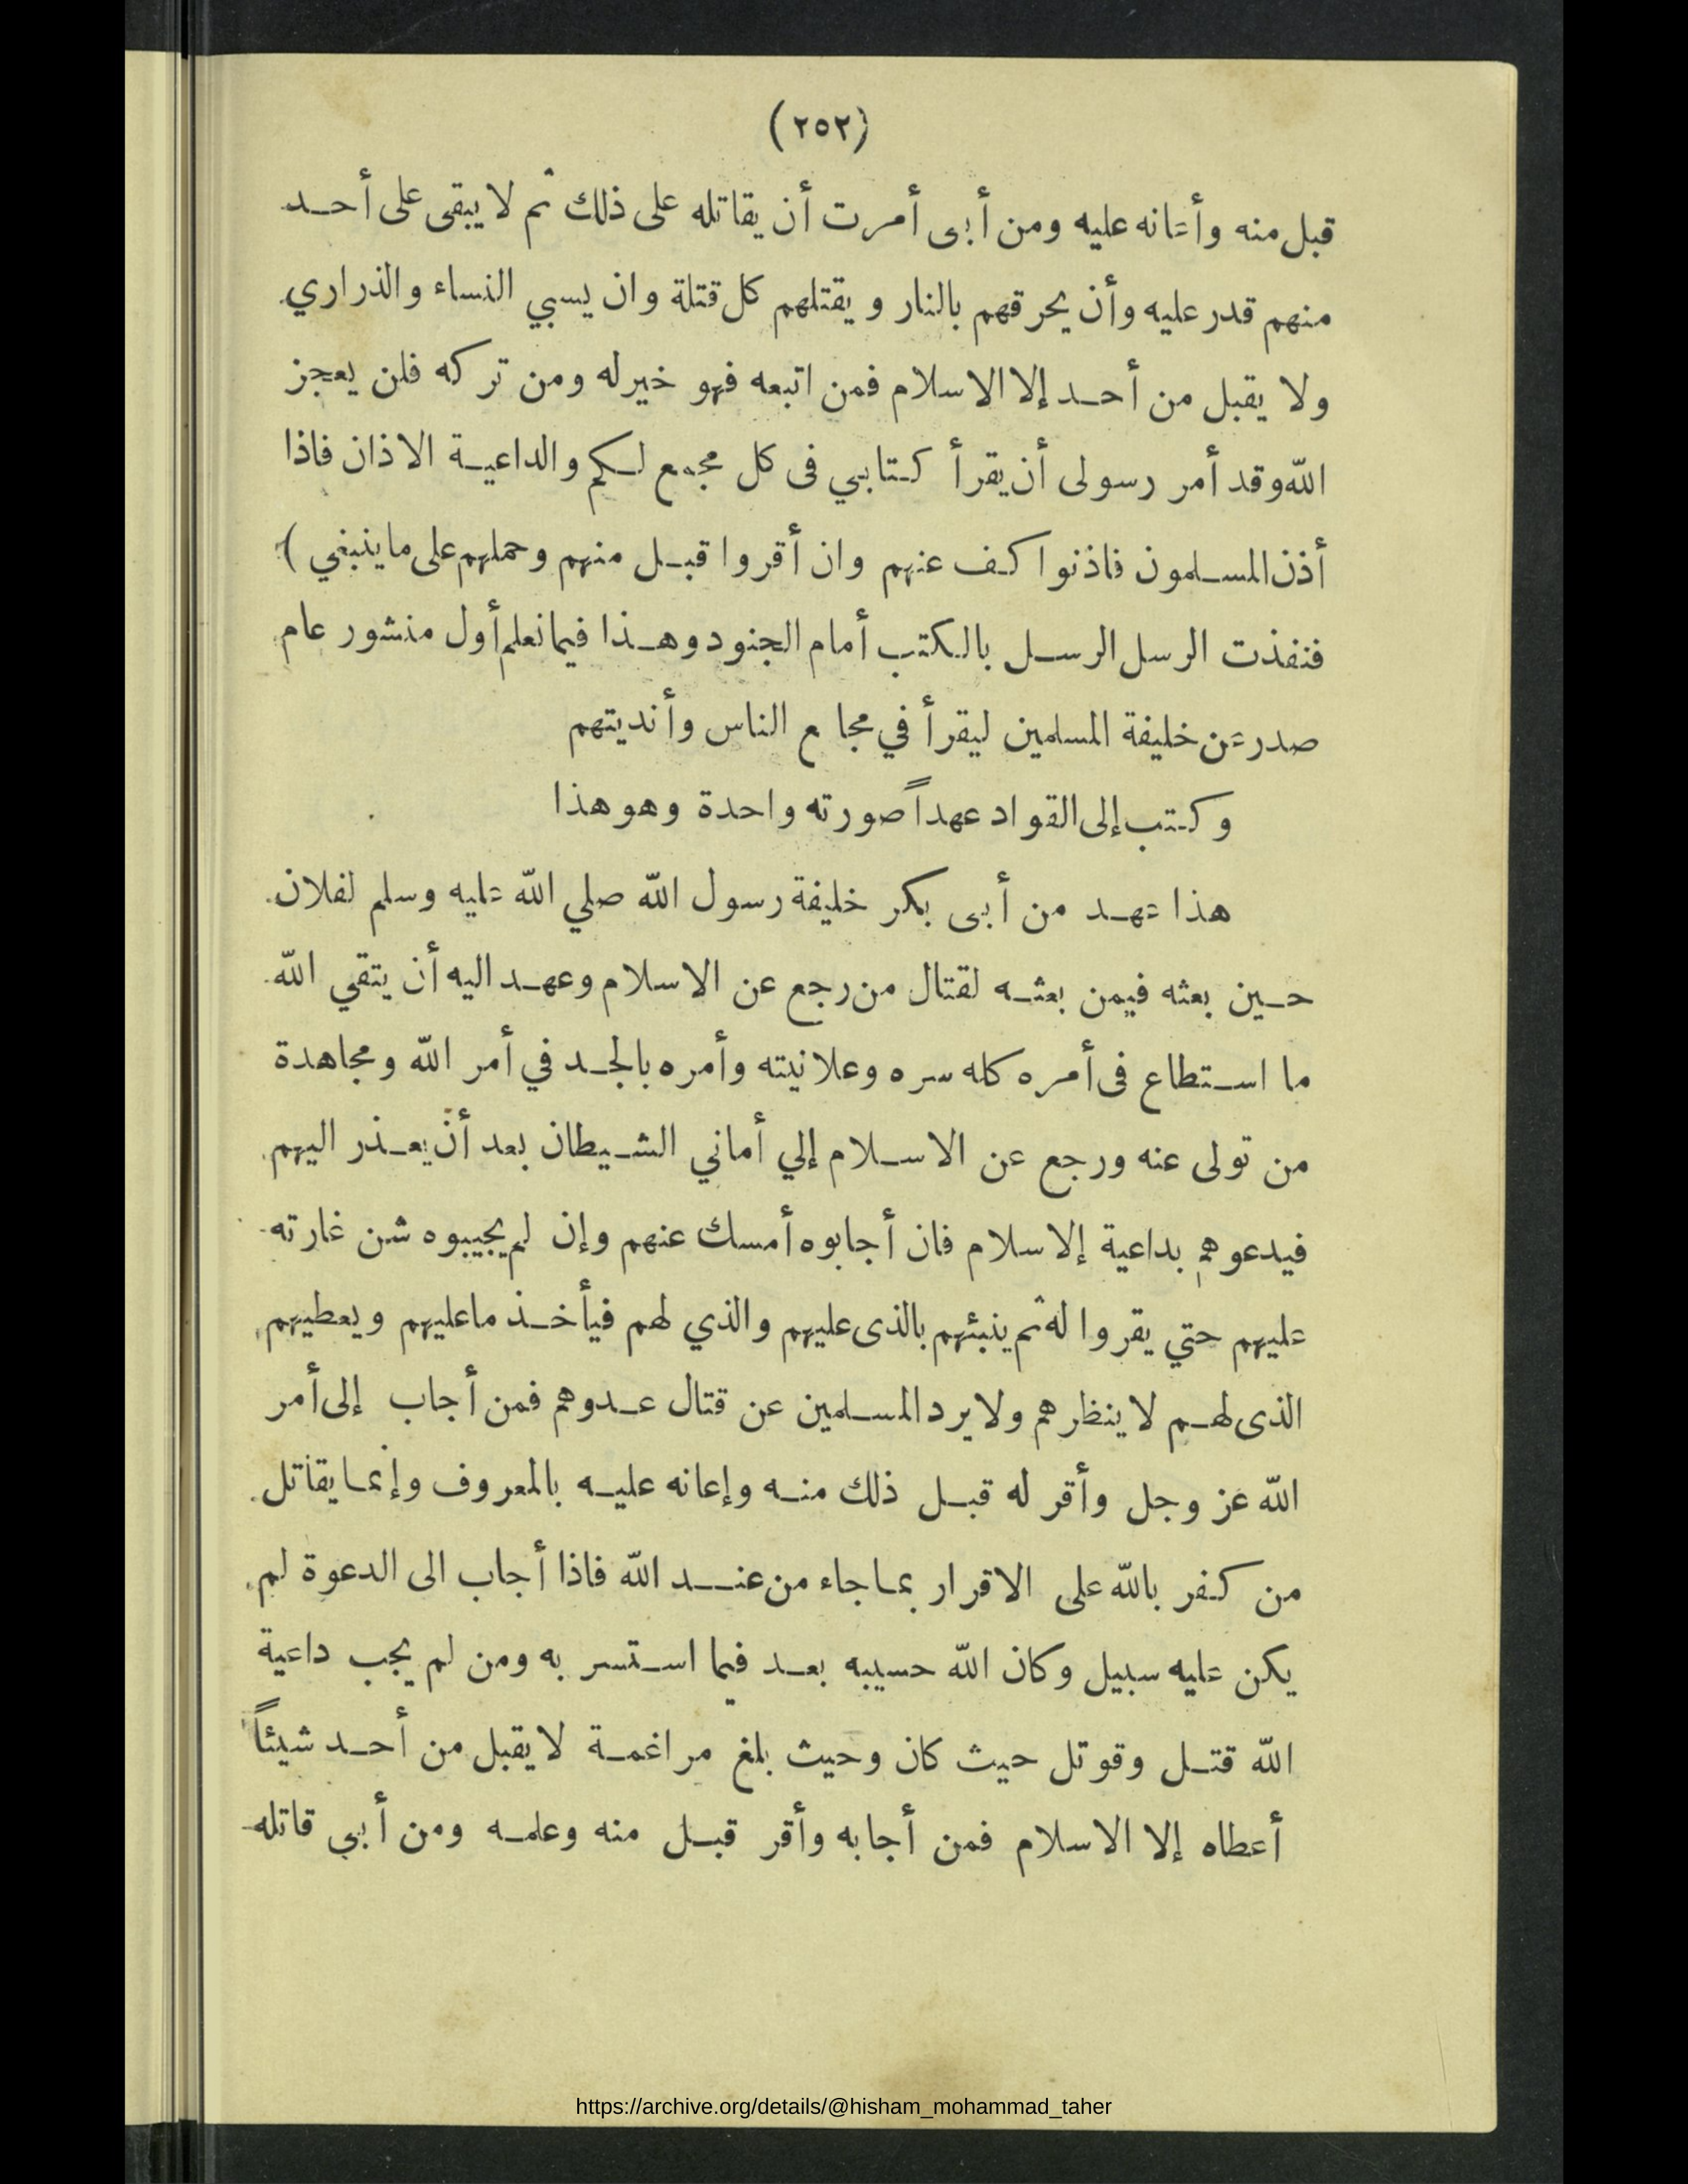 (٢٥٢)
قبل منه وأعانه عليه ومن أبى أمرت أن يقاتله على ذلك ثم لا يبقى على أحد
منهم قدر عليه وأن يحرقهم بالنار ويقتلهم كل قتلة وان يسبي النساء والذراري
ولا يقبل من أحد إلا الاسلام فمن اتبعه فهو خير له ومن تركه فلن يعجز
الله وقد أمر رسولى أن يقرأ كتابي فى كل مجمع لكم والداعية الاذان فاذا
أذن المسلمون فاذنوا كف عنهم وان أقروا قبل منهم وحملهم على ماينبغي )
فنفذت الرسل الرسل بالكتب أمام الجنود وهذا فيما نعلم أول منشور عام
صدر عن خليفة المسلمين ليقرأ في مجامع الناس وأنديتهم
وكتب إلى القواد عهداً صورته واحدة وهو هذا
هذا عهد من أبى بكر خليفة رسول الله صلي الله عليه وسلم لفلان
حين بعثه فيمن بعثه لقتال من رجع عن الاسلام وعهد اليه أن يتقي الله
ما استطاع فى أمره كله سره وعلانيته وأمره بالجد في أمر الله ومجاهدة
من تولى عنه ورجع عن الاسلام إلي أماني الشيطان بعد أن يعذر اليهم
فيدعوهم بداعية إلاسلام فان أجابوه أمسك عنهم وإن لم يجيبوه شن غارته
عليهم حتي يقروا له ثم ينبئهم بالذى عليهم والذي لهم فيأخذ ماعليهم ويعطيهم
الذى لهم لا ينظرهم ولا يرد المسلمين عن قتال عدوهم فمن أجاب إلى أمر
الله عز وجل وأقر له قبل ذلك منه وإعانه عليه بالمعروف وإنما يقاتل
من كفر بالله على الاقرار بما جاء من عند الله فاذا أجاب الى الدعوة لم
يكن عليه سبيل وكان الله حسيبه بعد فيما استسر به ومن لم يجب داعية
الله قتل وقوتل حيث كان وحيث بلغ مراغمة لا يقبل من أحد شيئاً
أعطاه إلا الاسلام فمن أجابه وأقر قبل منه وعلمه ومن أبي قاتله
https://archive.org/details/@hisham_mohammad_taher